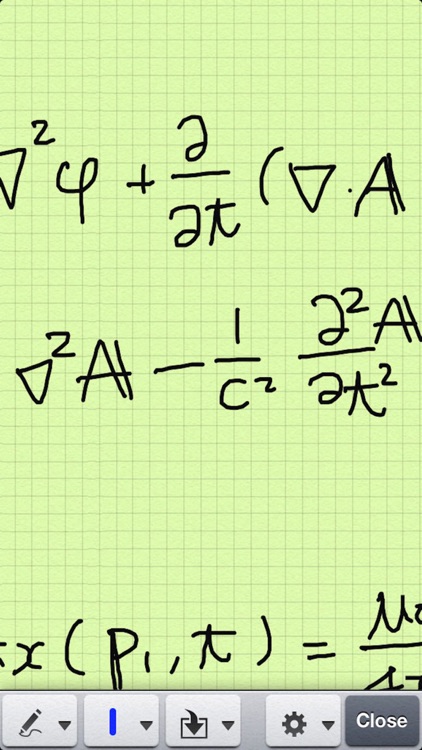 ∇²φ + ∂/∂t (∇·A
∇²A − 1/c² ∂²A/∂t²
x(p₁,t) = μ
Close